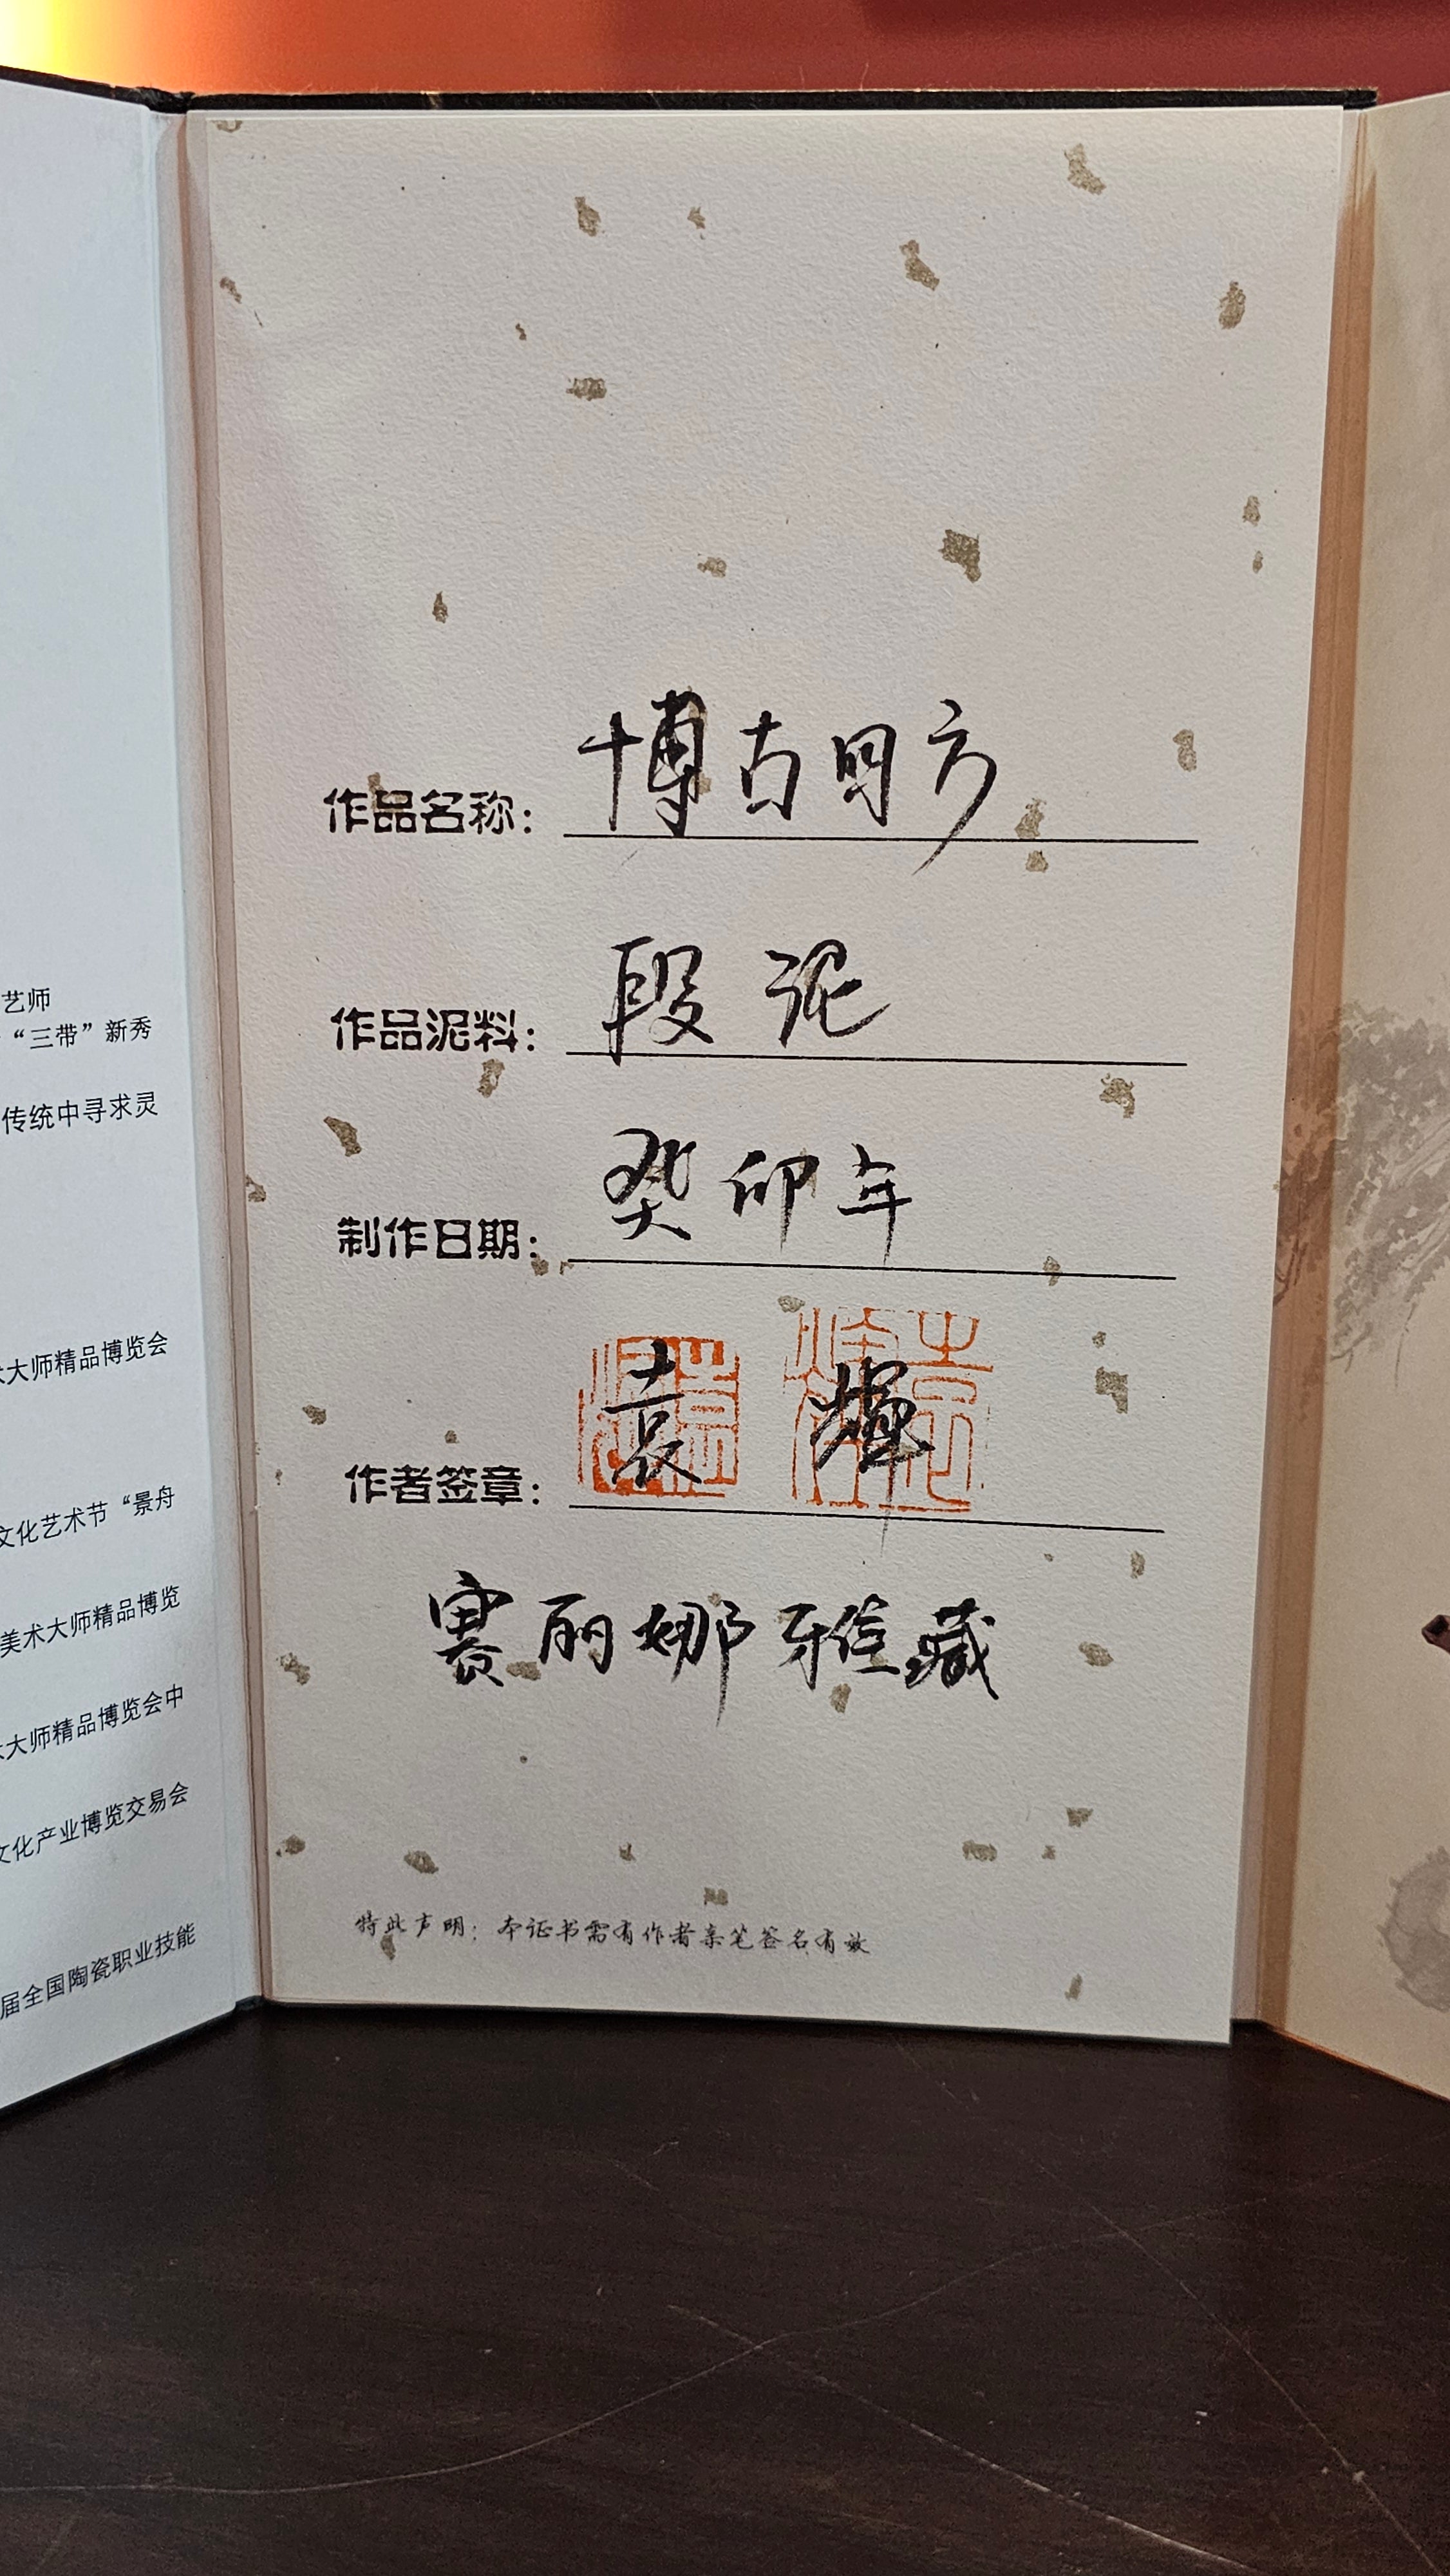 艺师
“三带”新秀
传统中寻求灵
大师精品博览会
文化艺术节“景舟
美术大师精品博览
大师精品博览会中
文化产业博览交易会
届全国陶瓷职业技能
作品名称：博古四方
作品泥料：段泥
制作日期：癸卯年
作者签章：袁輝
赛丽娜雅藏
特此声明：本证书需有作者亲笔签名有效